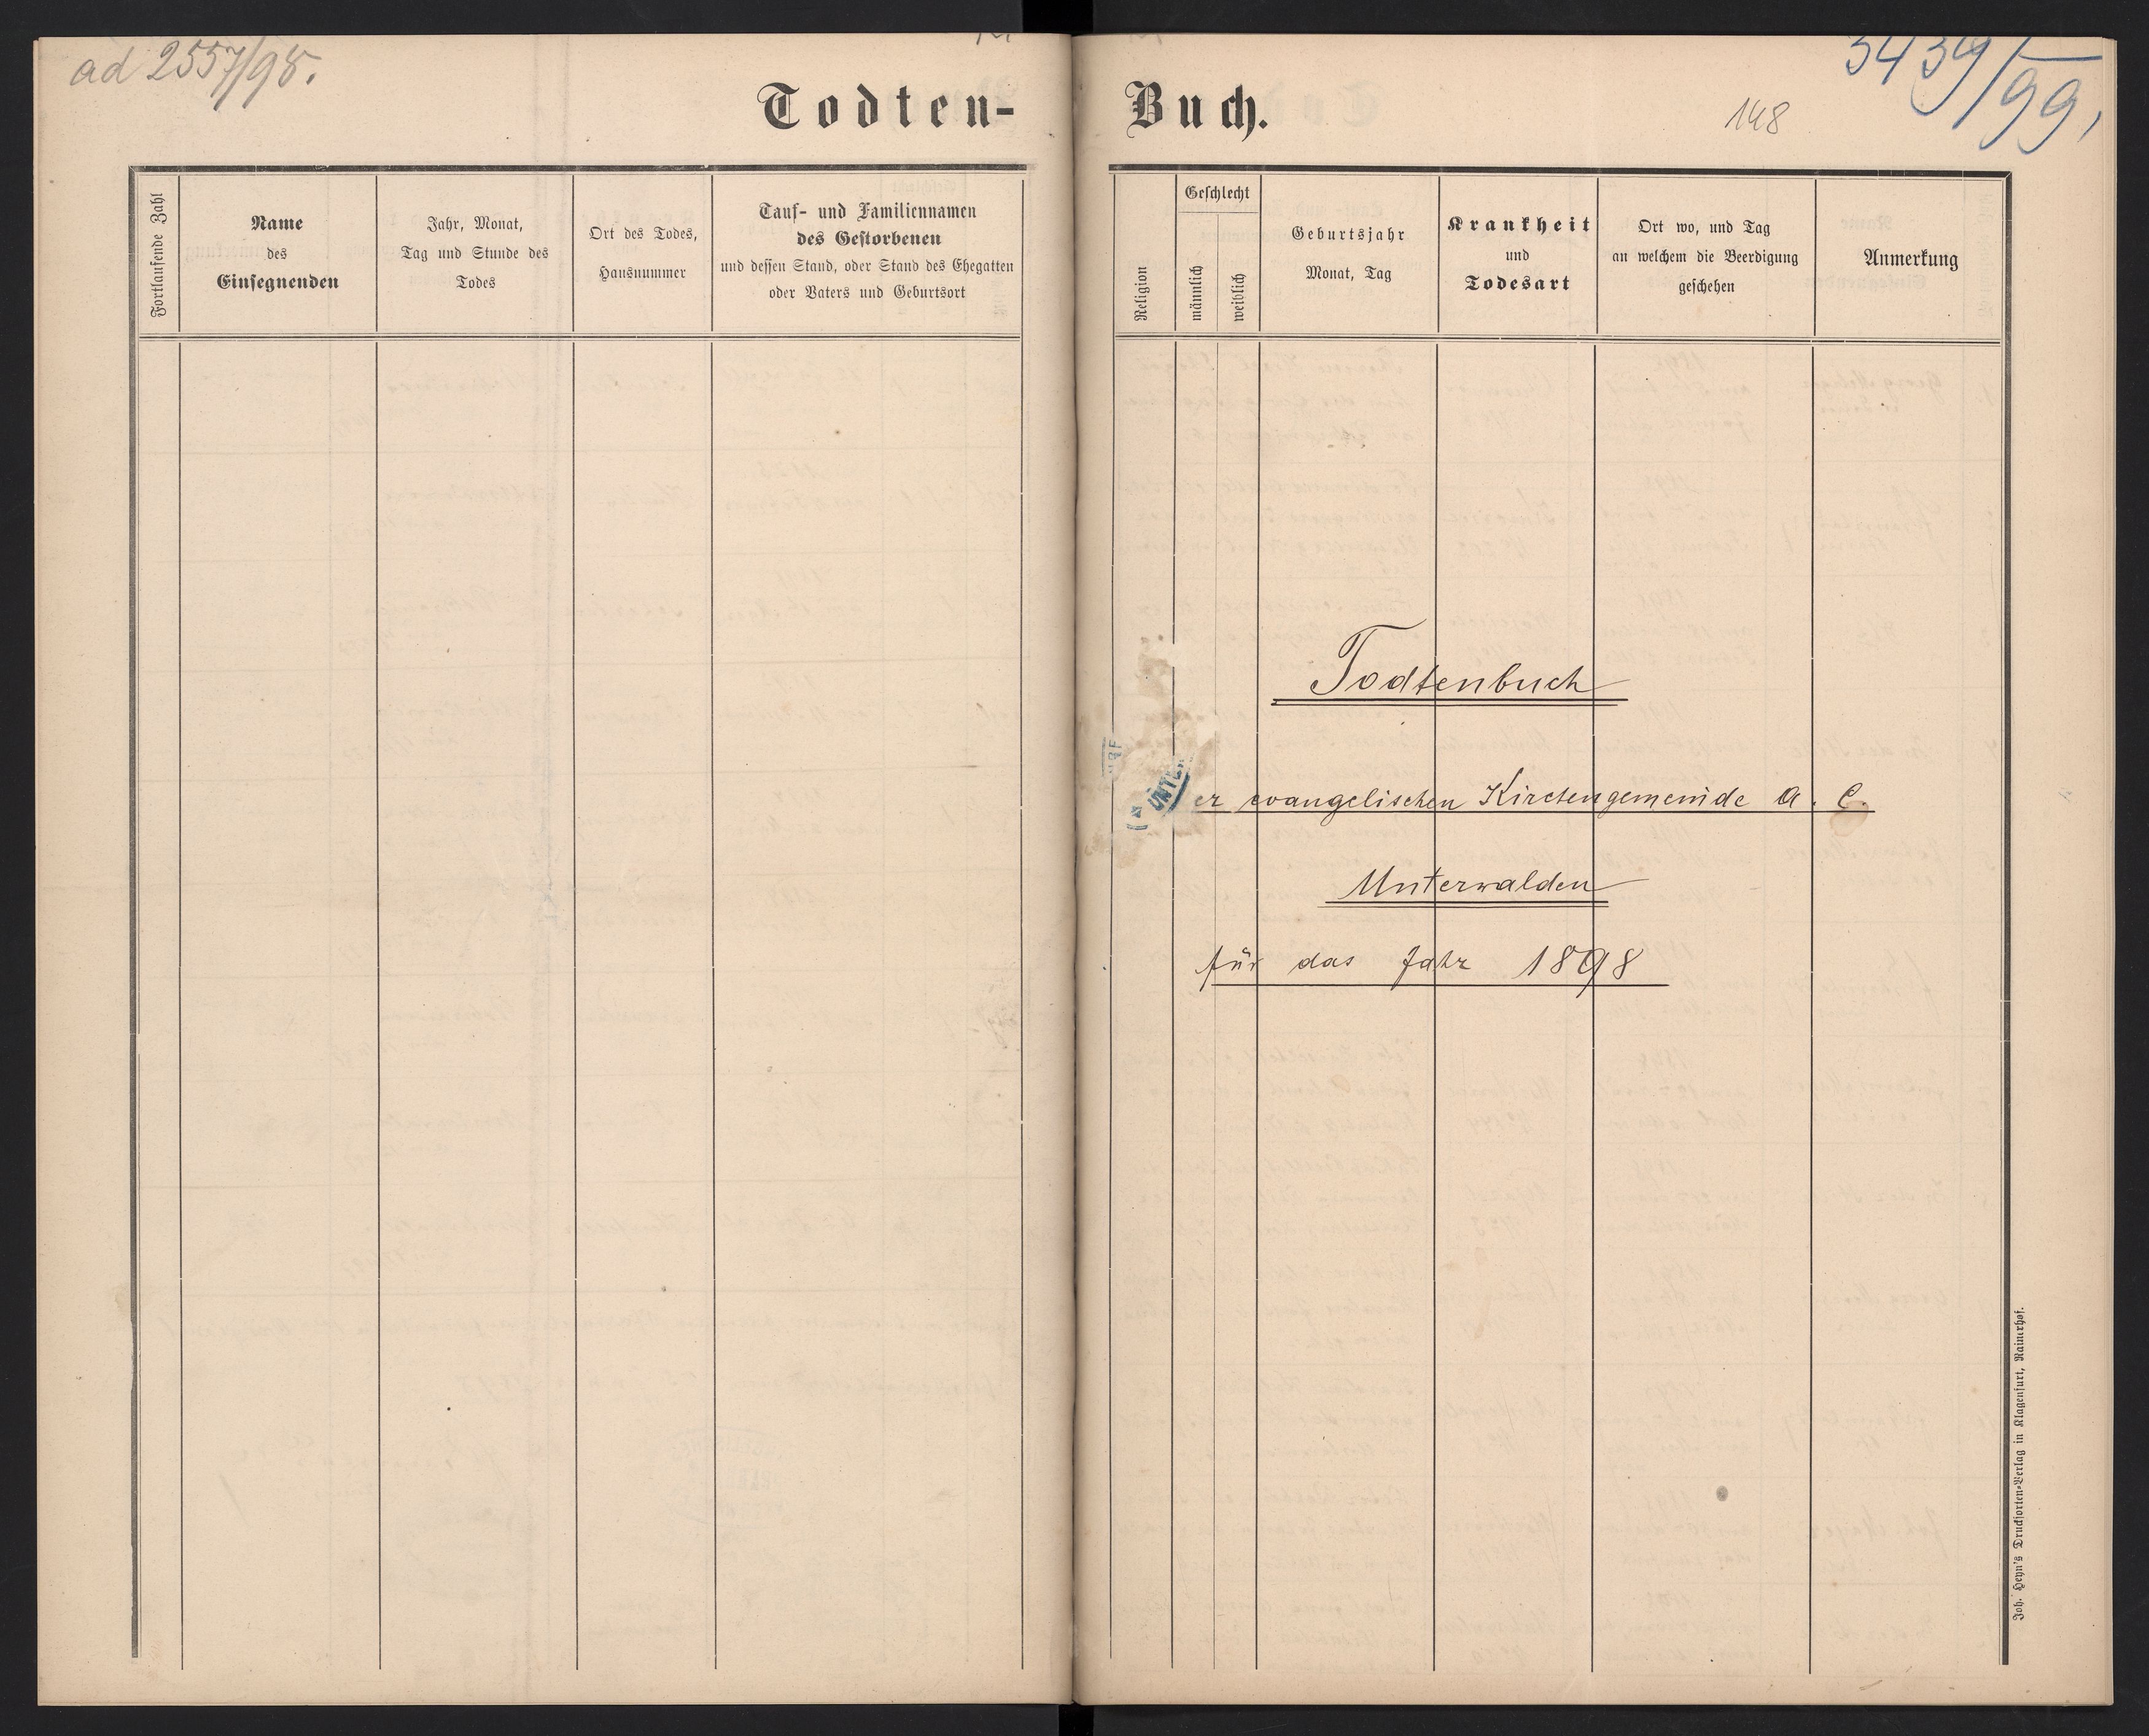 ad 2557/98.
Todten-
Fortlaufende Zahl
Name
des
Einsegnenden
Jahr, Monat,
Tag und Stunde des
Todes
Ort des Todes,
Hausnummer
Tauf- und Familiennamen
des Gestorbenen
und dessen Stand, oder Stand des Ehegatten
oder Vaters und Geburtsort
Buch.
148
3439/99,
Religion
Geschlecht
männlich
weiblich
Geburtsjahr
Monat, Tag
Krankheit
und
Todesart
Ort wo, und Tag
an welchem die Beerdigung
geschehen
Anmerkung
Todtenbuch
er evangelischen Kirchengemeinde A. C.
Unterwalden
für das Jahr 1898
Joh. Heyn's Drucksorten-Verlag in Klagenfurt, Rainerhof.